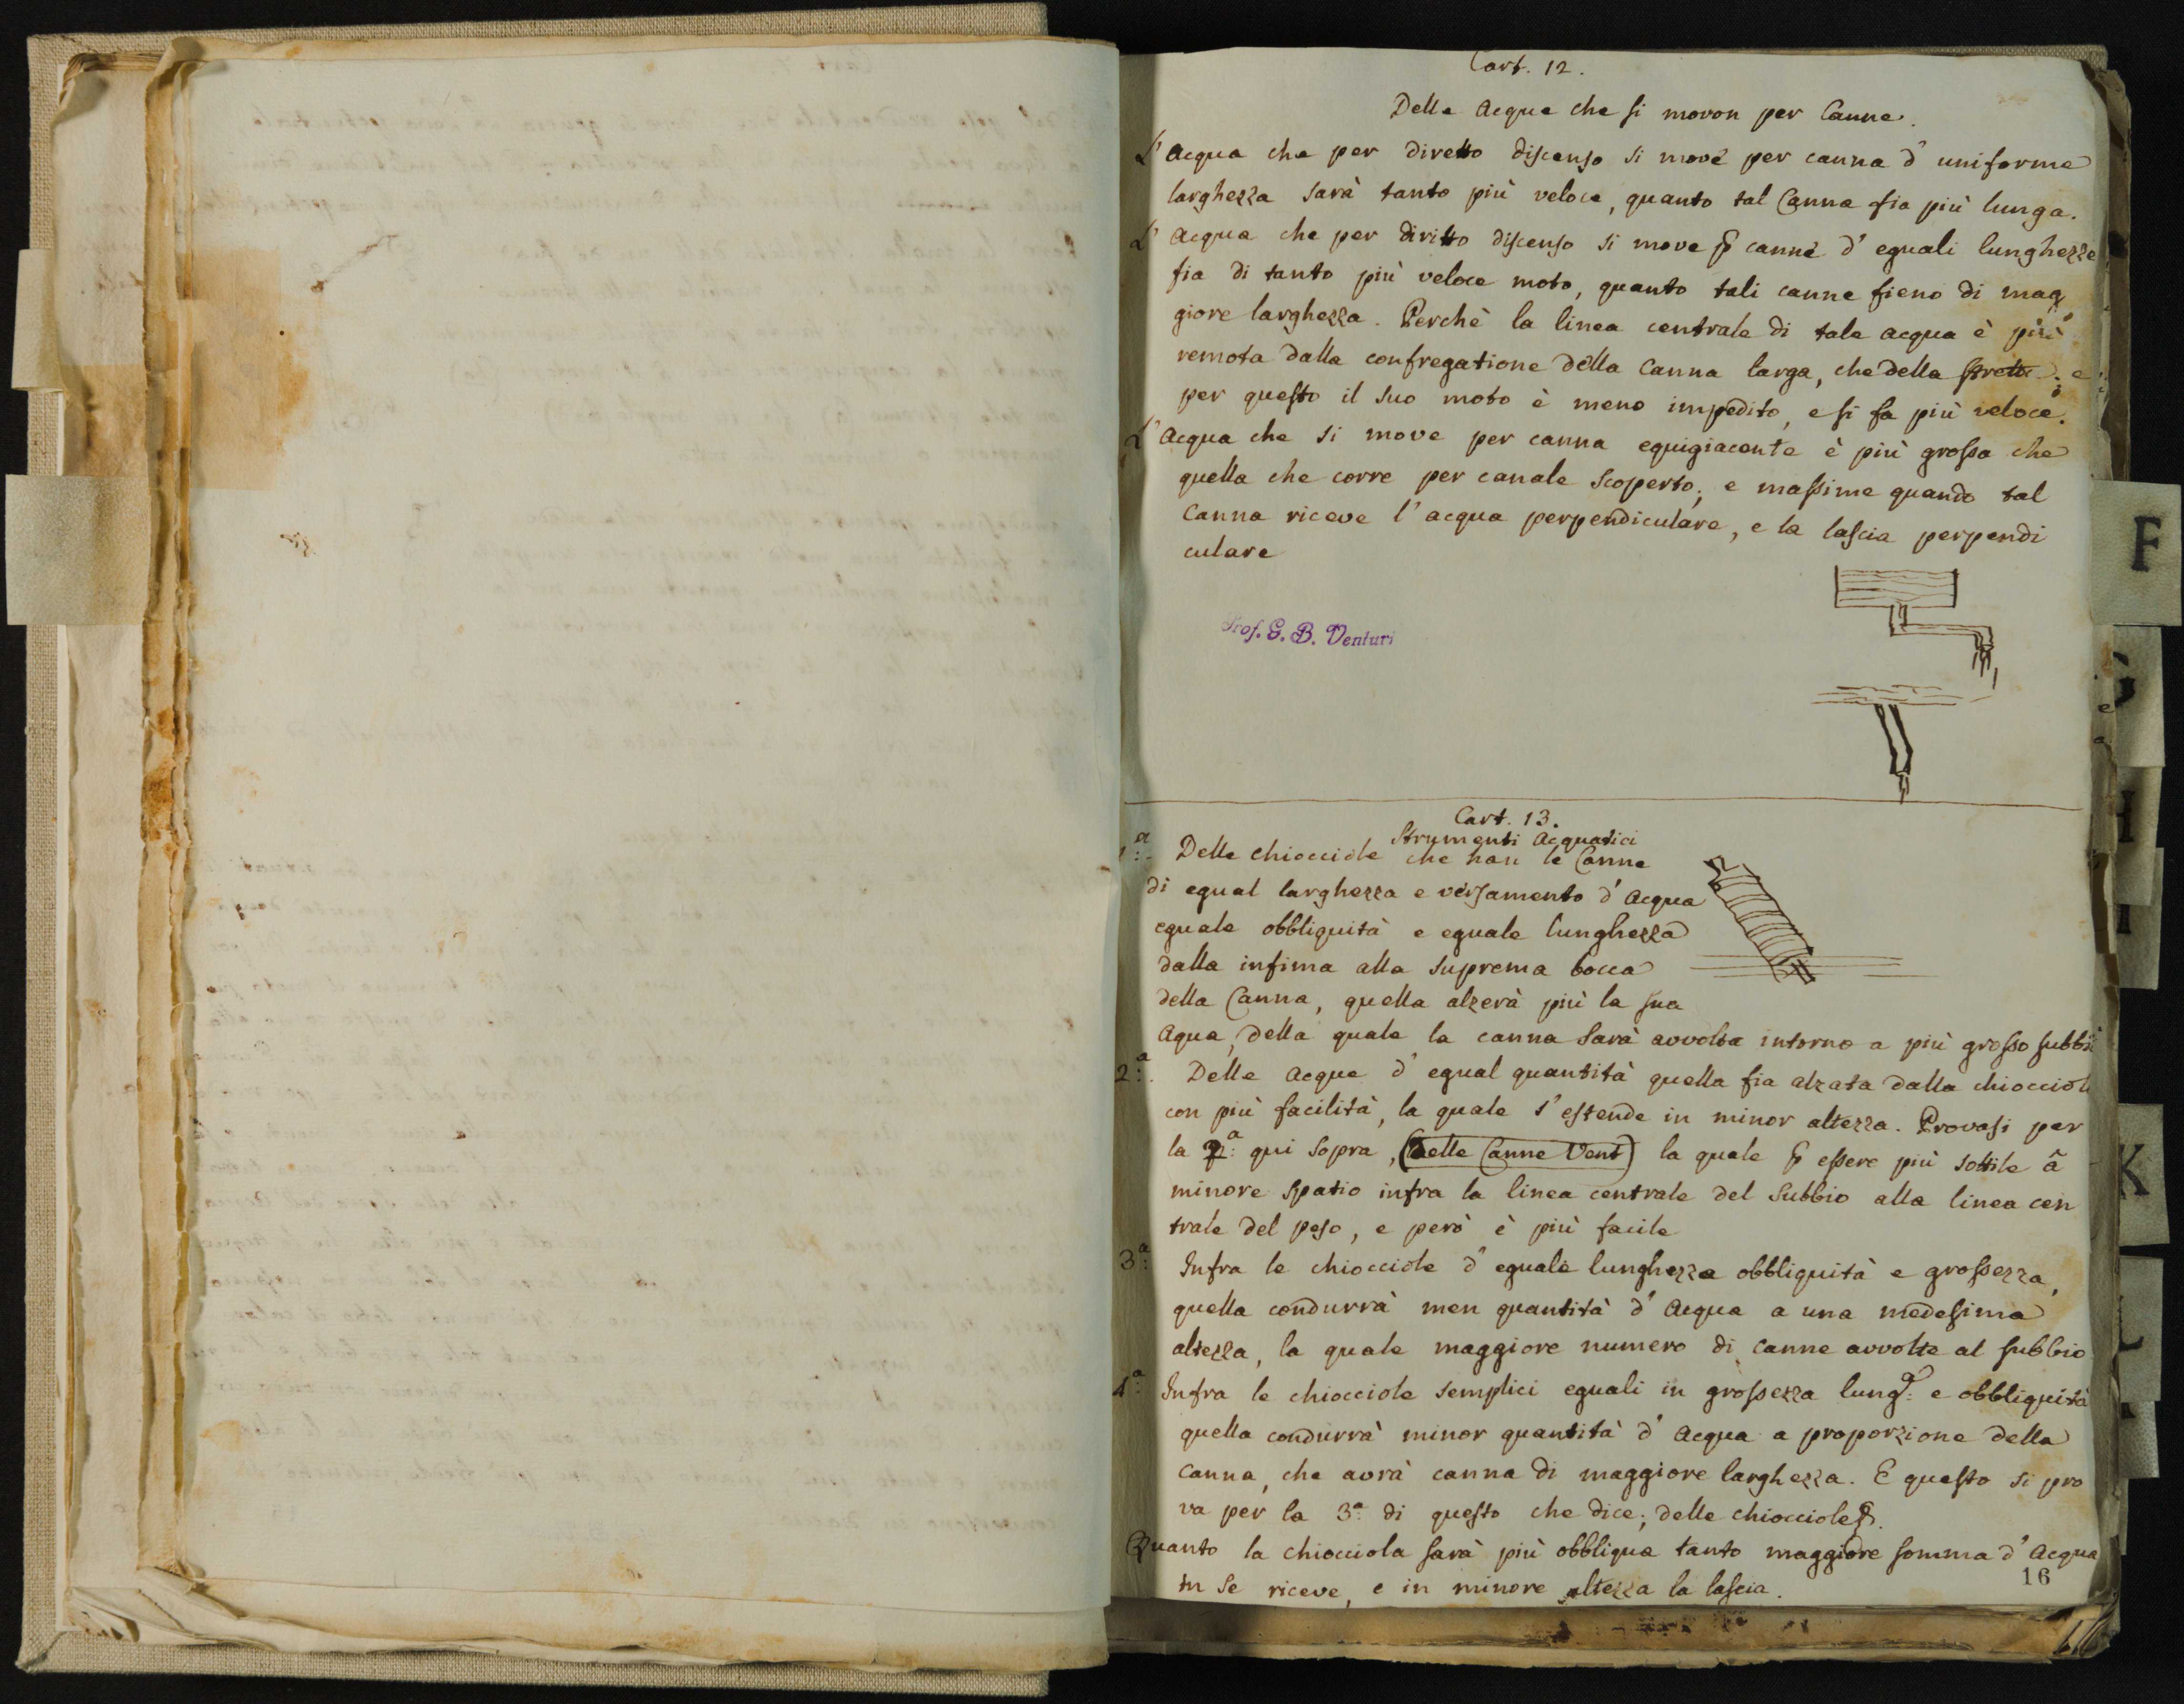 Cart. 12.
Delle Acque che si movon per Canne.
L'Acqua che per diretto discenso si move per canna d'uniforme
larghezza sarà tanto più veloce, quanto tal Canna fia più lunga.
L'Acqua che per diritto discenso si move p canne d'eguali lunghezze
fia di tanto più veloce moto, quanto tali canne fieno di mag
giore larghezza. Perchè la linea centrale di tale acqua è più
remota dalla confregatione della Canna larga, che della stretta; e
per questo il suo moto è meno impedito, e si fa più veloce.
L'Acqua che si move per canna equigiacente è più grossa che
quella che corre per canale scoperto; e massime quando tal
Canna riceve l'acqua perpendiculare, e la lascia perpendi
culare
Prof. G. B. Venturi
Cart. 13.
Strumenti Acquatici
1.ª Delle chiocciole che han le Canne
di egual larghezza e versamento d'Acqua
eguale obbliquità e eguale lunghezza
dalla infima alla suprema bocca
della Canna, quella alzerà più la sua
Aqua, della quale la canna sarà avvolta intorno a più grosso subbio
2.ª Delle Acque d'egual quantità quella fia alzata dalla chiocciola
con più facilità, la quale s'estende in minor altezza. Provasi per
la 2.ª qui sopra, (Delle Canne Vent) la quale p essere più sottile â
minore spatio infra la linea centrale del subbio alla linea cen
trale del peso, e però è più facile
3.ª Infra le chiocciole d'eguale lunghezza obbliquità e grossezza,
quella condurrà men quantità d'Acqua a una medesima
altezza, la quale maggiore numero di canne avvolte al subbio
4.ª Infra le chiocciole semplici eguali in grossezza lung.ª e obbliquità
quella condurrà minor quantità d'Acqua a proporzione della
canna, che avrà canna di maggiore larghezza. E questo si pro
va per la 3.ª di questo che dice; delle chiocciole
Quanto la chiocciola sarà più obbliqua tanto maggiore somma d'Acqua
in se riceve, e in minore altezza la lascia.
16
F
H
K